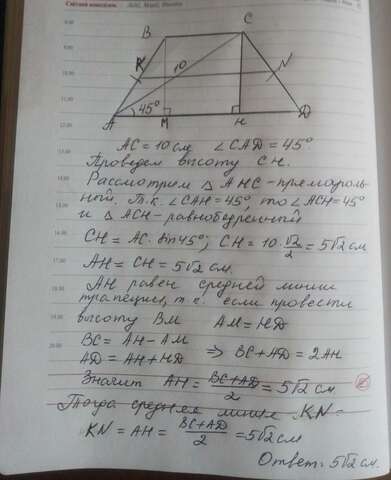 Світлий понеділок
8.00
9.00
10.00
11.00
12.00
B C
K N
10
45°
A M H D
AC = 10 см, ∠CAD = 45°
Проведем высоту CH.
Рассмотрим △ AHC - прямоуголь-
ной. Т.к. ∠CAH = 45°, то ∠ACH = 45°
и △ ACH - равнобедренный
CH = AC · sin 45°; CH = 10 · √2/2 = 5√2 см
AH = CH = 5√2 см.
AH равен средней линии
трапеции, т.к. если провести
высоту BM AM = HD
BC = AH - AM
AD = AH + HD ⇒ BC + AD = 2AH
Значит AH = (BC + AD)/2 = 5√2 см.
Тогда средняя линия KN =
KN = AH = (BC + AD)/2 = 5√2 см
Ответ: 5√2 см.